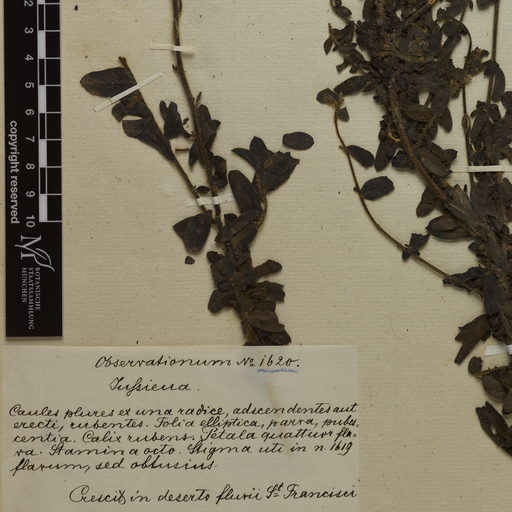 2
3
4
5
6
7
8
9
10
copyright reserved
M
BOTANISCHE
STAATSSAMMLUNG
MÜNCHEN
Observationum No 1620.
Jussieua.
Caules plures ex una radice, adscendentes aut
erecti, rubentes. Folia elliptica, parva, pubes-
centia. Calix rubens. Petala quattuor fla-
va. Stamina octo. Stigma uti in n 1619
flavum, sed obtusius.
Crescit in deserto fluvii St Francisci